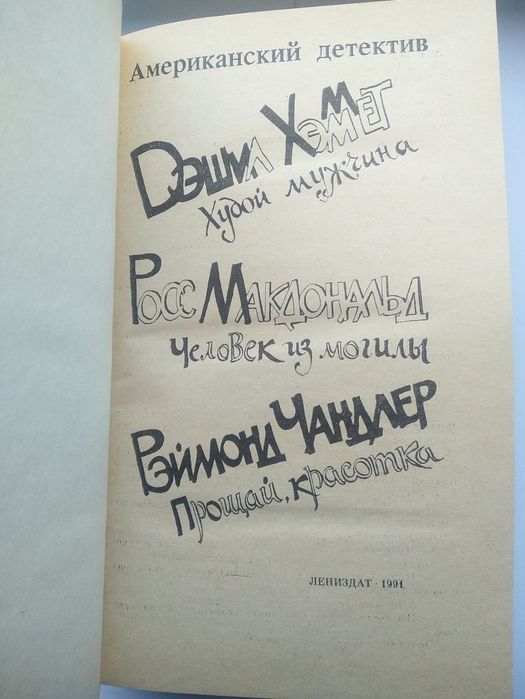 Американский детектив
Дэшил Хэммет
Худой мужчина
Росс Макдональд
Человек из могилы
Рэймонд Чандлер
Прощай, красотка
ЛЕНИЗДАТ · 1991